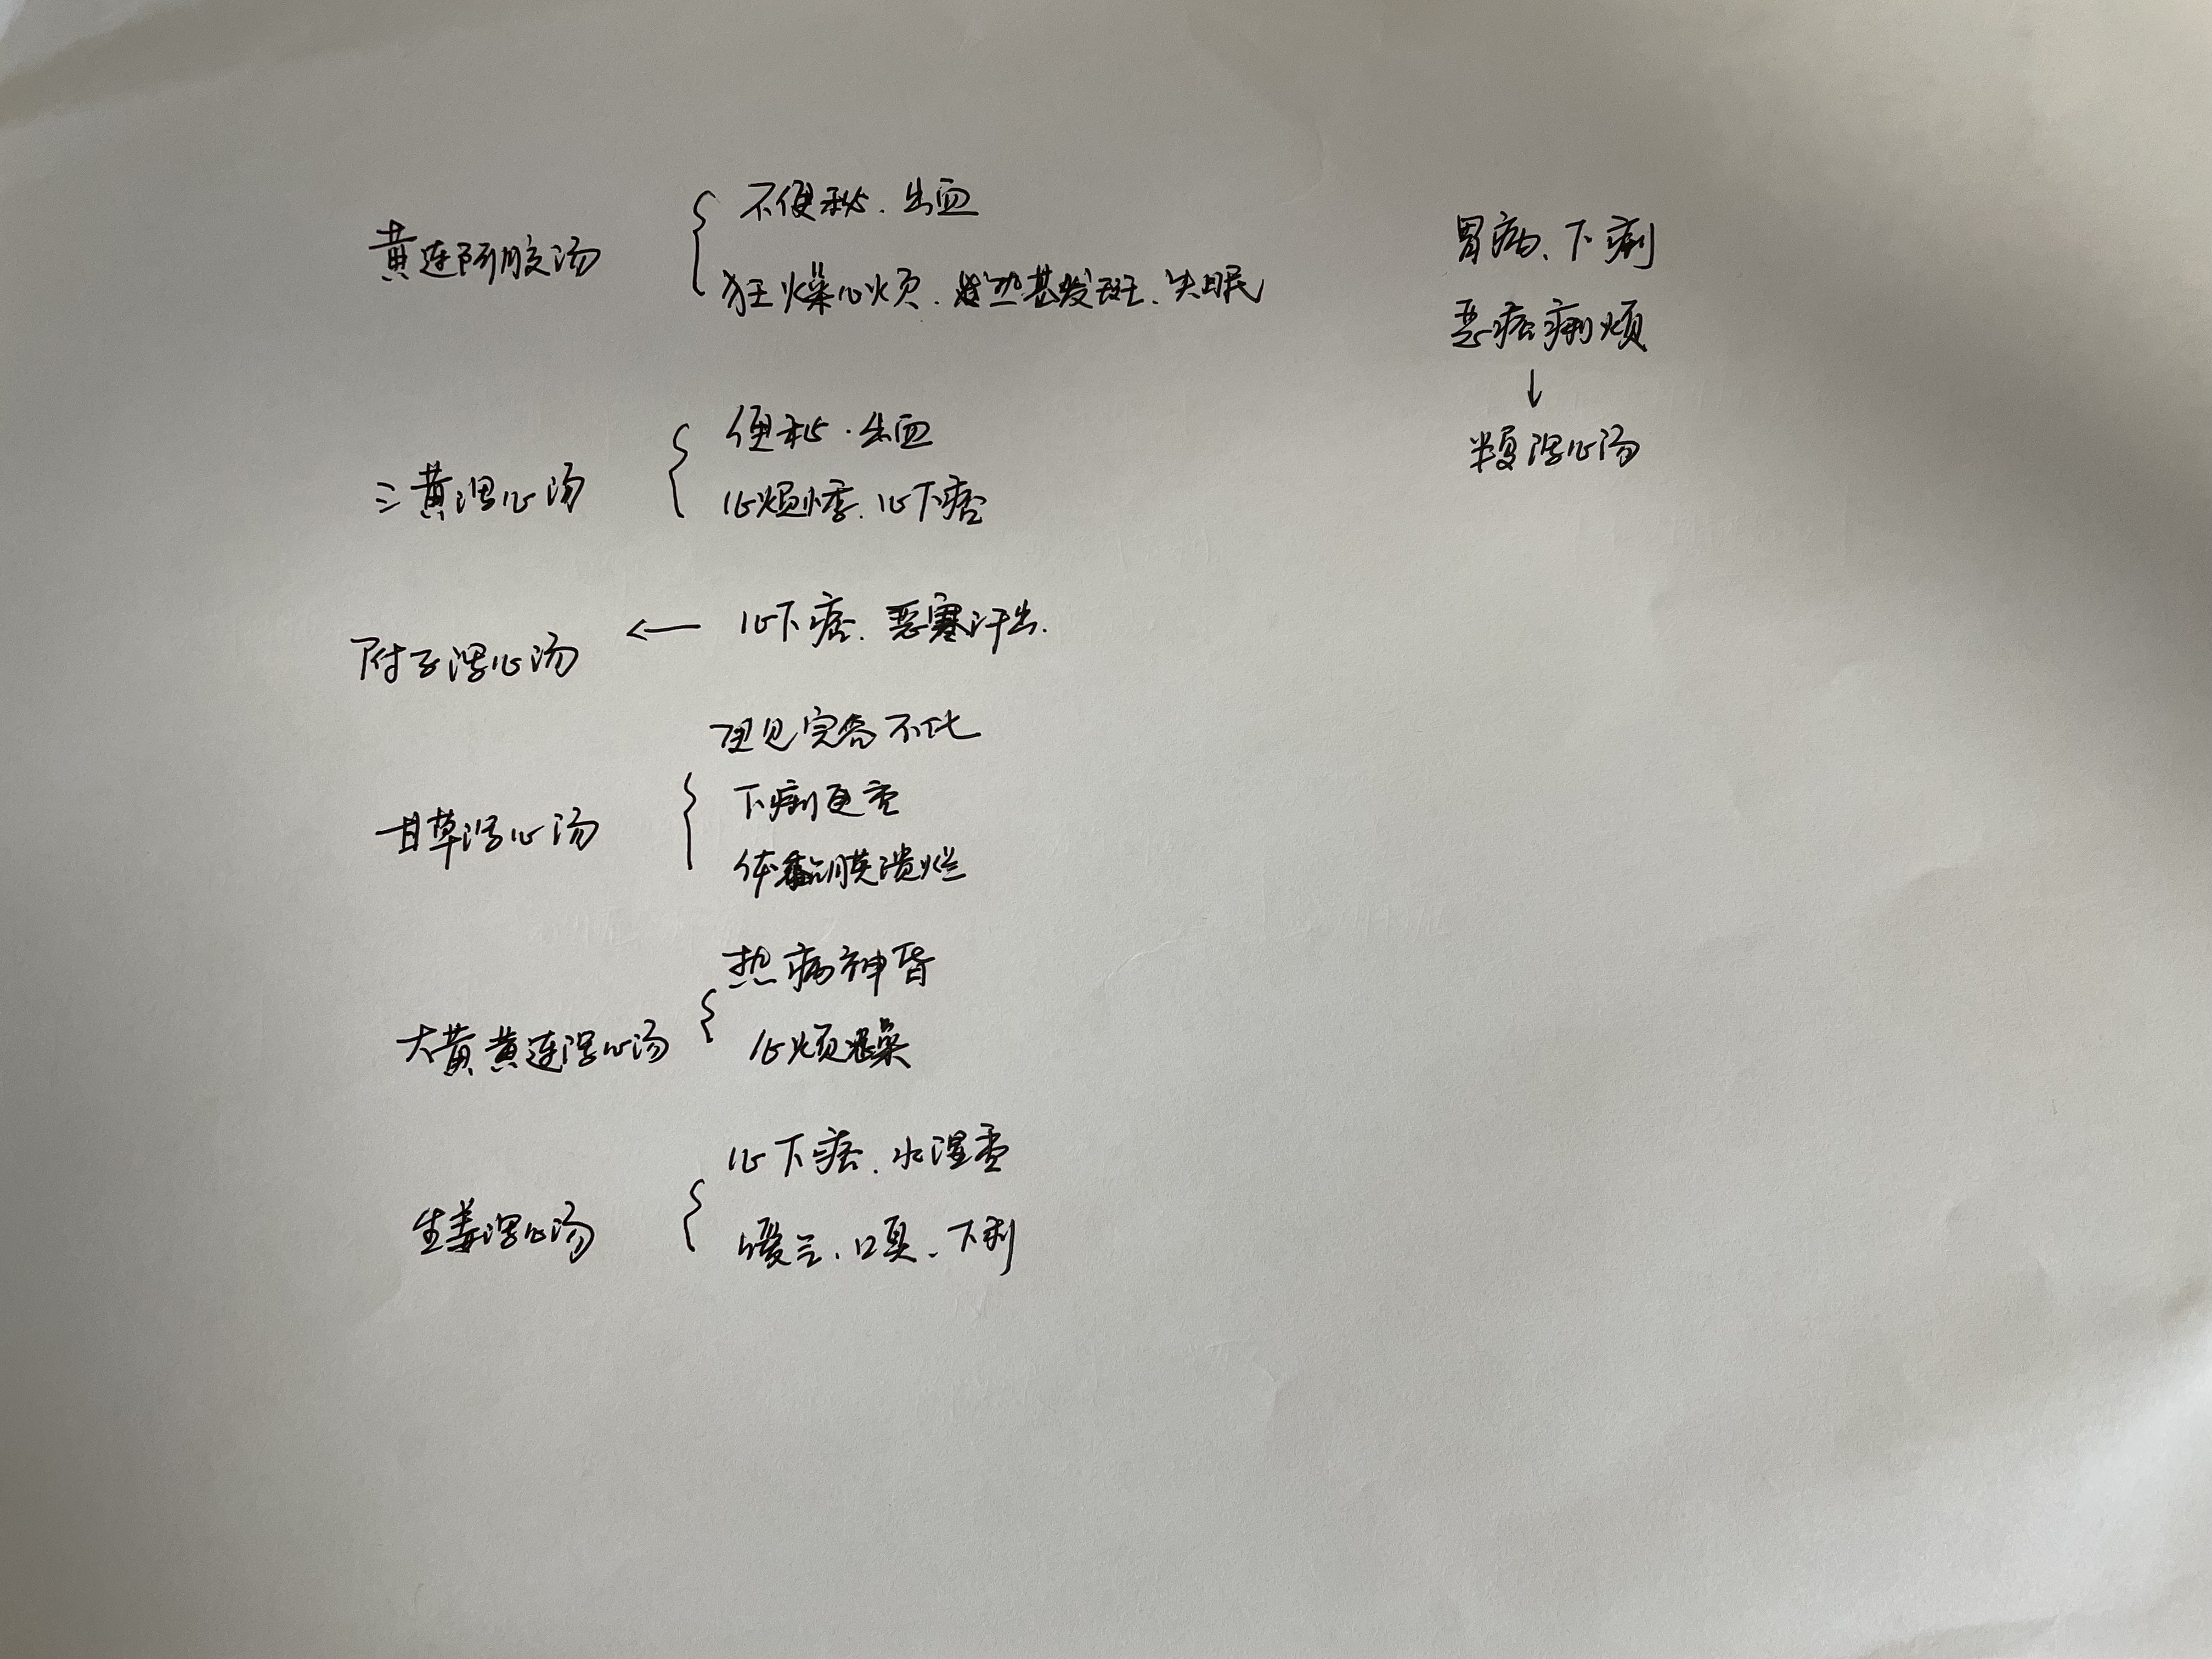 黄连阿胶汤
不便秘.出血
狂燥心烦.发热甚发斑.失眠
三黄泻心汤
便秘.出血
心烦悸.心下痞
附子泻心汤 ← 心下痞.恶寒汗出.
甘草泻心汤
完谷不化
下痢更重
体黏膜溃烂
大黄黄连泻心汤
热病神昏
心烦燥
生姜泻心汤
心下痞.水湿重
嗳气、口臭、下利
胃病、下痢
恶痞痢烦
↓
半夏泻心汤